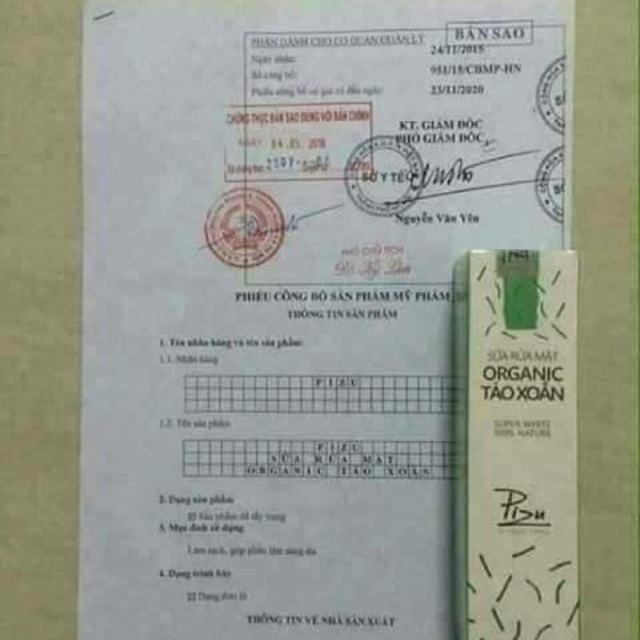 BẢN SAO
PHẦN DÀNH CHO CƠ QUAN QUẢN LÝ
Ngày nhận: 24/11/2015
Số công bố: 951/15/CBMP-HN
Phiếu công bố có giá trị đến ngày: 23/11/2020
CHỨNG THỰC BẢN SAO ĐÚNG VỚI BẢN CHÍNH
KT. GIÁM ĐỐC
PHÓ GIÁM ĐỐC
SỞ Y TẾ
Nguyễn Văn Yên
PHÓ CHỦ TỊCH
PHIẾU CÔNG BỐ SẢN PHẨM MỸ PHẨM
THÔNG TIN SẢN PHẨM
1. Tên nhãn hàng và tên sản phẩm:
1.1. Nhãn hàng
PIZU
1.2. Tên sản phẩm
PIZU
SỮA RỬA MẶT
ORGANIC TẢO XOẮN
2. Dạng sản phẩm
Sản phẩm để tẩy trang
3. Mục đích sử dụng
Làm sạch, góp phần làm sáng da
4. Dạng trình bày
Dạng đơn lẻ
THÔNG TIN VỀ NHÀ SẢN XUẤT
SỮA RỬA MẶT
ORGANIC
TẢO XOẮN
SUPER WHITE
100% NATURE
Pizu